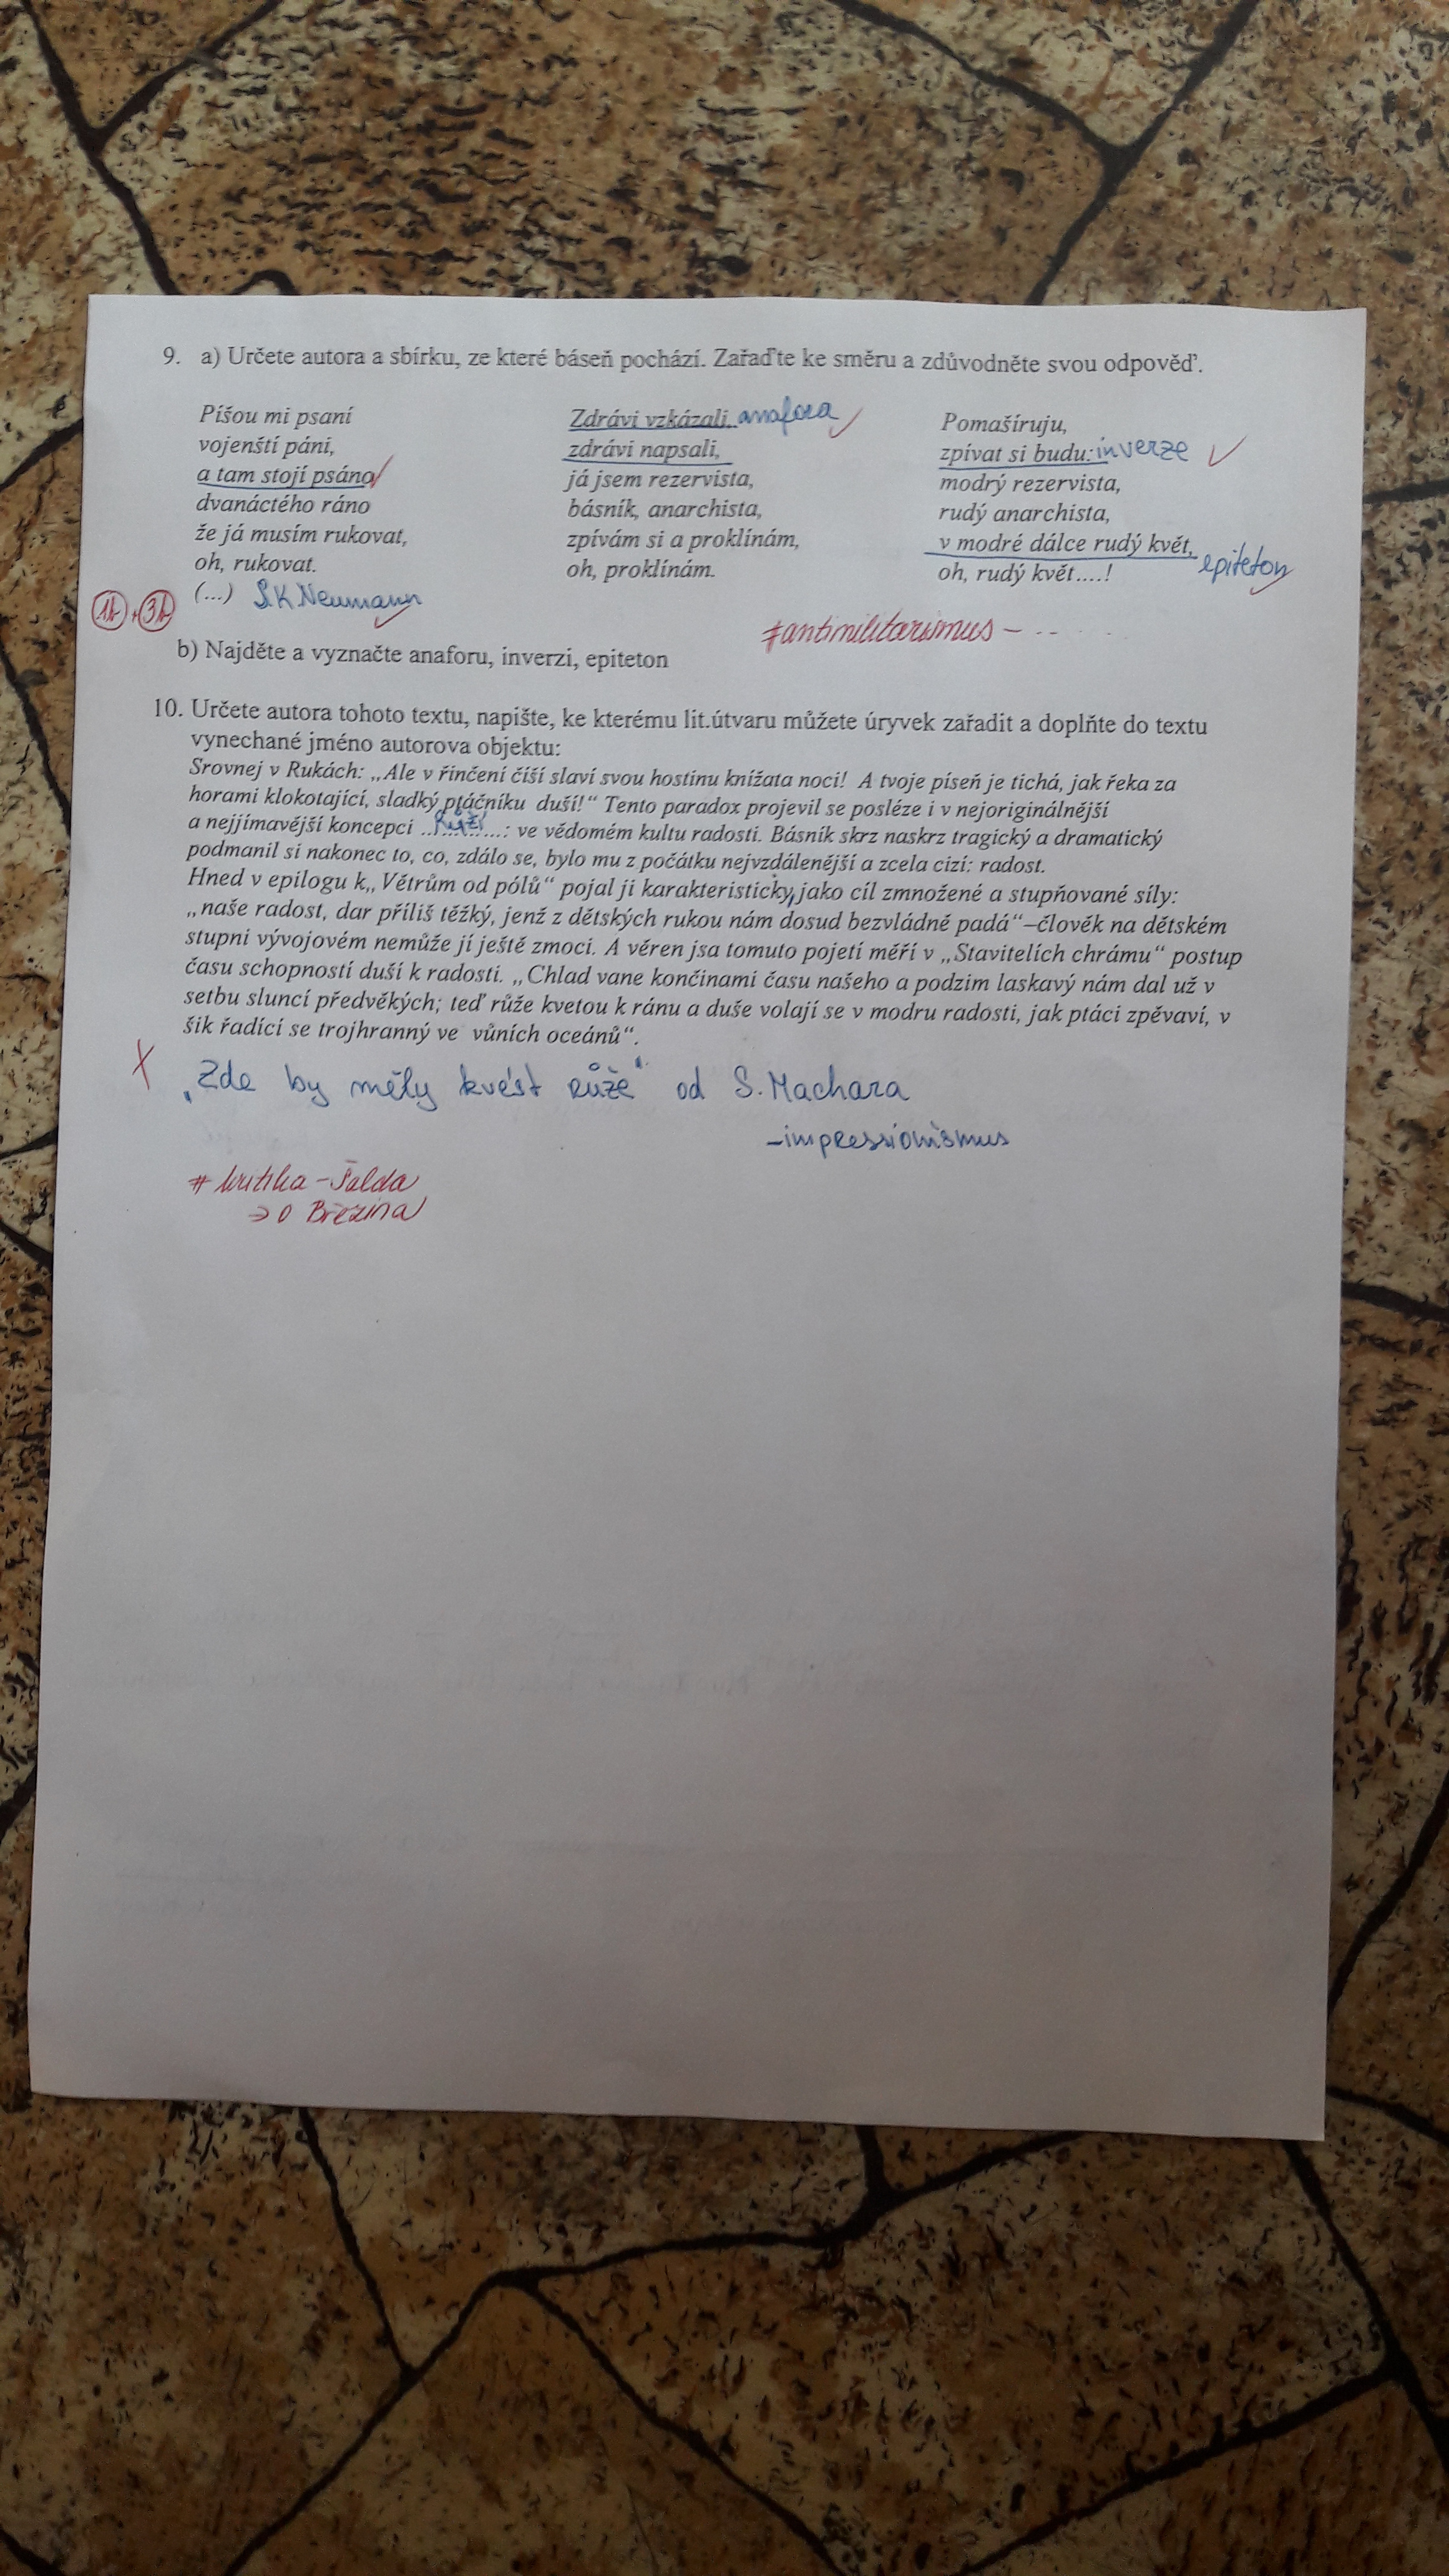 9. a) Určete autora a sbírku, ze které báseň pochází. Zařaďte ke směru a zdůvodněte svou odpověď.
Píšou mi psaní
vojenští páni,
a tam stojí psáno
dvanáctého ráno
že já musím rukovat,
oh, rukovat.
(...) S.K.Neumann
1b + 3b
Zdrávi vzkázali, anafora
zdrávi napsali,
já jsem rezervista,
básník, anarchista,
zpívám si a proklínám,
oh, proklínám.
Pomašíruju,
zpívat si budu: inverze
modrý rezervista,
rudý anarchista,
v modré dálce rudý květ,
epiteton
oh, rudý květ....!
#antimilitarismus - -- . . .
b) Najděte a vyznačte anaforu, inverzi, epiteton
10. Určete autora tohoto textu, napište, ke kterému lit.útvaru můžete úryvek zařadit a doplňte do textu
vynechané jméno autorova objektu:
Srovnej v Rukách: „Ale v řinčení číší slaví svou hostinu knížata noci! A tvoje píseň je tichá, jak řeka za
horami klokotající, sladký ptáčníku duší!“ Tento paradox projevil se posléze i v nejoriginálnější
a nejjímavější koncepci ..Růží..: ve vědomém kultu radosti. Básník skrz naskrz tragický a dramatický
podmanil si nakonec to, co, zdálo se, bylo mu z počátku nejvzdálenější a zcela cizí: radost.
Hned v epilogu k„ Větrům od pólů“ pojal ji karakteristicky, jako cíl zmnožené a stupňované síly:
„naše radost, dar příliš těžký, jenž z dětských rukou nám dosud bezvládně padá“–člověk na dětském
stupni vývojovém nemůže jí ještě zmoci. A věren jsa tomuto pojetí měří v „Stavitelích chrámu“ postup
času schopností duší k radosti. „Chlad vane končinami času našeho a podzim laskavý nám dal už v
setbu sluncí předvěkých; teď růže kvetou k ránu a duše volají se v modru radosti, jak ptáci zpěvaví, v
šik řadící se trojhranný ve vůních oceánů“.
„Zde by měly kvést růže“ od S. Machara
-impressionismus
# kritika - Šalda
→ O Březina